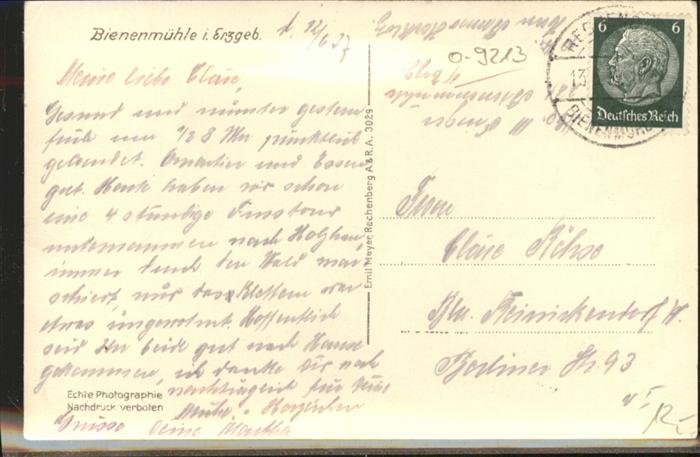 Bienenmühle i. Erzgeb.
d. 12/6 37
Meine liebe Cläre,
Gesund und munter gestern
früh um 1/2 8 Uhr pünktlich
gelandet. Quartier und Essen
gut. Heute haben wir schon
eine 4 stündige Fusstour
unternommen nach Holzhau,
immer durch den Wald mar
schiert, nur das Klettern war
etwas ungewohnt. Hoffentlich
seid Ihr beide gut nach Hause
gekommen, ich danke Dir noch
nachträglich für Eure
Mühe. Herzlichen
Gruss Deine Martha
Echte Photographie
Nachdruck verboten
Emil Meyer, Rechenberg A.&R.A. 3029
0-9213
6 6
Deutsches Reich
BIENENMÜHLE
13
Frau
Cläre Röhse
Bln. Reinickendorf W.
Berliner Str 93
12.-